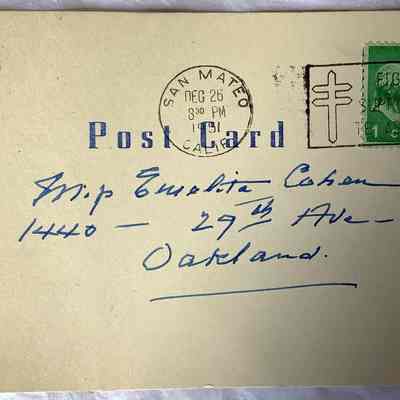 SAN MATEO
DEC 26
8 30 PM
1951
CALIF.
FIG
TB
1 c
Post Card
Miss Emelita Cohen
1440 — 29th Ave —
Oakland.